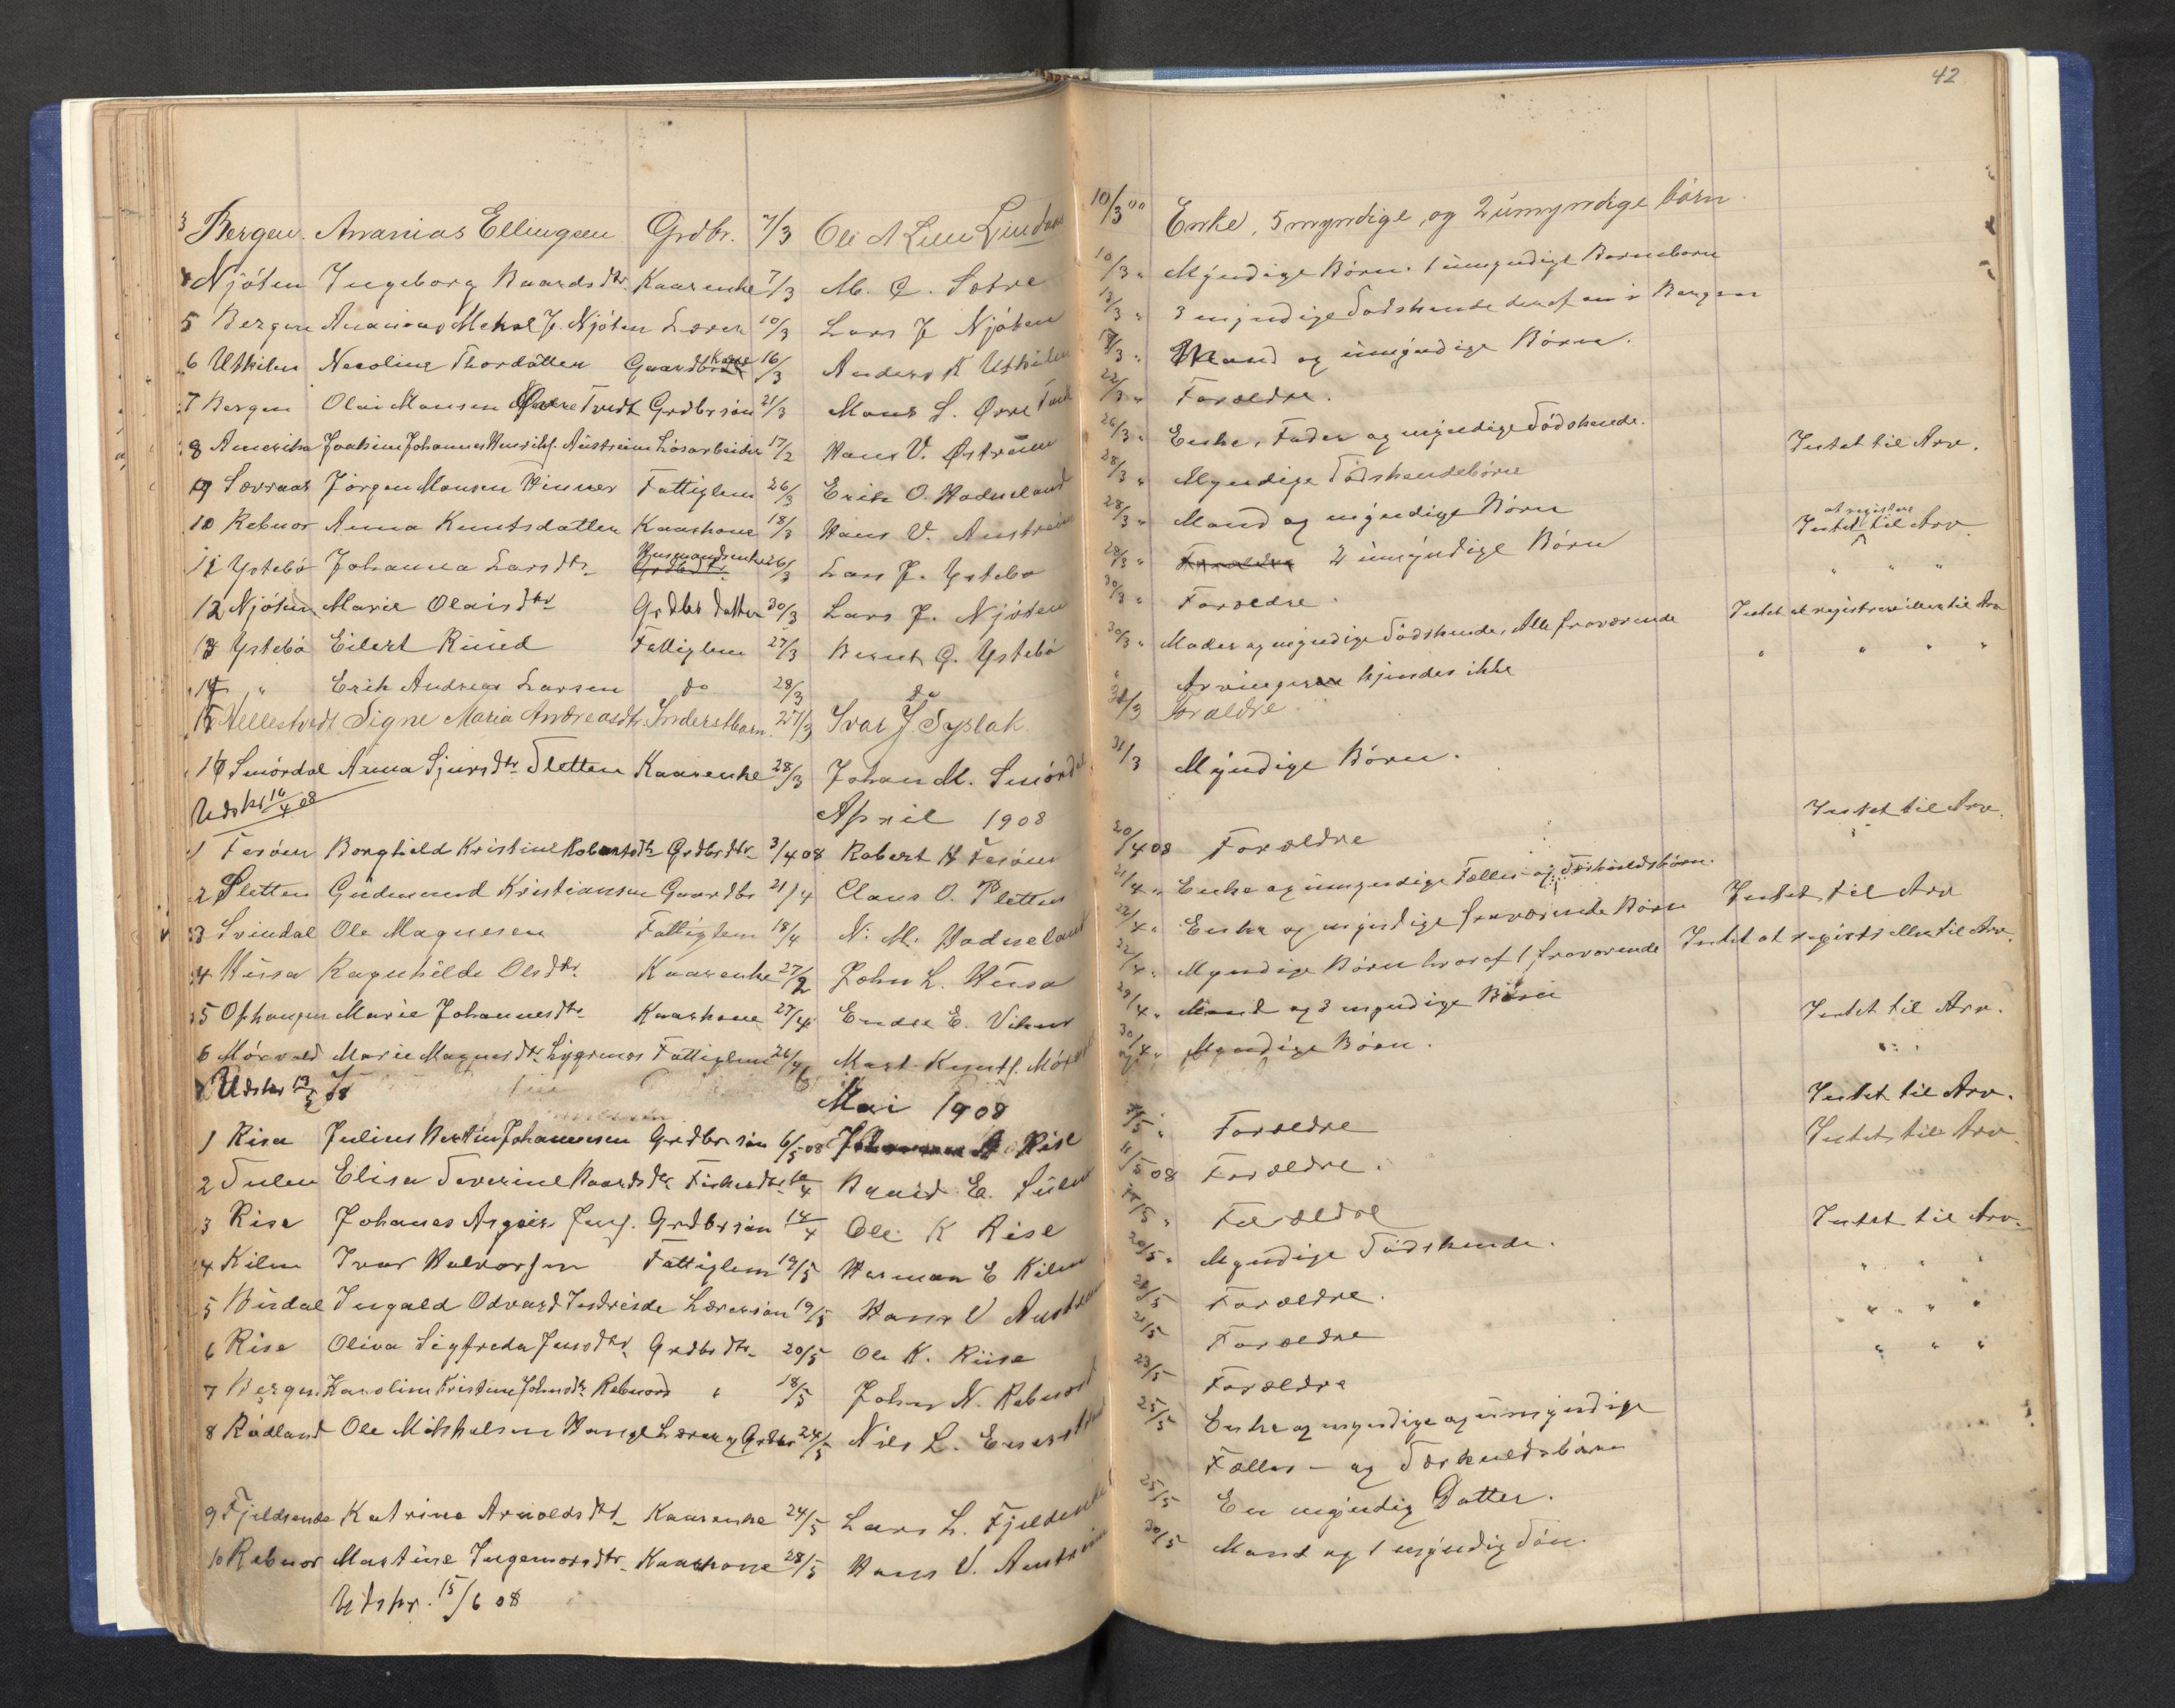 42
3 Bergen. Ananias Ellingsen Grdbr. 7/3 Ole A Lien Lindaas 10/3 Enke, 5 myndige, og 2 umyndige børn.
4 Njøten Ingeborg Baardsdtr. Kaarenke 7/3 M. C. Sætre 10/3 " Myndige Børn. 1 umyndige Barnebarn
5 Bergen J. Njøten Lærer 10/3 Lars J Njøten 13/3 " 3 myndige Sødskende deraf en i Bergen
6 Utkilen Necoline Thordatter Gaardbr Kone 16/3 Anders K Utkilen " Mand og umyndige Børn.
7 Bergen Olai Monsen Øvre Tvedt Grdbrsøn 21/3 Mons S. Øvre Tvedt 22/3 " Forældre.
8 Amerika Joakim Johannes Henrikf. Austreim Løsarbeider 17/2 Hans V. Østreim 26/3 " Enke, Fader og myndige Sødskende. Intet til Arv.
9 Sævraas Jørgen Monsen Finner Fattiglem 26/3 Erik O. Hadneland 28/3 " Myndige Sødskendebørn
10 Rebnor Anna Knutsdatter Kaarkone 18/3 Hans V. Austreim 28/3 " Mand og myndige Børn Intet at registrere til Arv
11 Ystebø Johanna Larsdtr. Husmandsenke 26/3 Lars J. Ystebø 28/3 " Forældre 2 umyndige Børn " " "
12 Njøten Marie Olaisdtr Grdbr datter 30/3 Lars J. Njøten 30/3 " Forældre.
13 Ystebø Eilert Knud Fattiglem 27/3 Bernt C. Ystebø 30/3 " Moder og myndige Sødskende, Alle fraværende Intet at registrere eller til Arv
14 " Erik Andreas Larsen do 28/3 do " Arvingerne kjendes ikke " " " "
15 Hellestvedt Signe Maria Andreasdtr. Inderstbarn. 27/3 Ivar J Syslak 31/3 Foraldre
16 Smørdal Anna Sjursdtr Sletten Kaarenke 28/3 Johan M. Smørdal 31/3 Myndige Børn.
Udskr 16/4 08
April 1908
1 Fesøen Borghild Kristine Robertsdtr Grdbrdtr. 3/4 08 Robert H Fesøen 20/4 08 Forældre Intet til Arv.
2 Sletten Gudmund Kristiansen Gaardbr 21/4 Claus O. Sletten 21/4 " Enke og umyndige Fælles- og Særkuldsbørn.
3 Svindal Ole Magnesen Fattiglem 18/4 N. M. Hadneland 22/4 " Enke og myndige fraværende Børn Intet til Arv
4 Husa Ragnhilde Olsdtr. Kaarenke 27/2 John L. Husa 22/4 " Myndige Børn hvoraf 1 fraværende Intet at registr eller til Arv.
5 Ophaugen Marie Johannesdtr. Kaarkone 27/4 Endre E. Viken 29/4 " Mand og 3 myndige Børn Intet til Arv.
6 Mørvold Marie Magnesdtr. Lygrenes Fattiglem 26/4 Mart. Knutf. Mørvold 30/4 " Myndige Børn. " "
Udskr 13/5 08
Mai 1908
1 Risa Julius Bertin Johannesen Grdbr søn 6/5 08 Johannes A Rise 7/5 " Forældre Intet til Arv.
2 Sulen Elisa Severine Baardsdtr Fiskerdtr Baard E. Sulen 11/5 08 Forældre. Intet til Arv.
3 Rise Johanes Asgeir Jensf. Grdbr søn 14/4 Ole K Rise Forældre Intet til Arv.
4 Kilen Ivar Halvorsen Fattiglem 19/5 Herman E Kilen 20/5 " Myndige Sødskende. " " "
5 Burdal Ingald Odvard Indresde Lærersøn 19/5 Hans V Austreim 20/5 Forældre. " " "
6 Rise Oliva Sigfreda Jensdtr. Grdbr dtr. 20/5 Ole K. Riise 21/5 Forældre " " "
7 Bergen Karoline Kristine Johnsdtr. Rebnord " 18/5 John N. Rebnord 23/5 Forældre
8 Rødland Ole Mikkelsen Hauge Lærer og Grdbr 24/5 Nils L. 25/5 Enke og myndige og umyndige
Fælles- og Særkuldsbørn
9 Fjeldsende Katrine Arnoldsdtr. Kaarenke 24/5 Lars L. Fjeldsende 25/5 En myndig Datter.
10 Rebnor Martine Ingemorsdtr. Kaarkone 28/5 Hans V. Austreim 30/5 Mand og 1 myndig Søn.
Udskr. 15/6 08